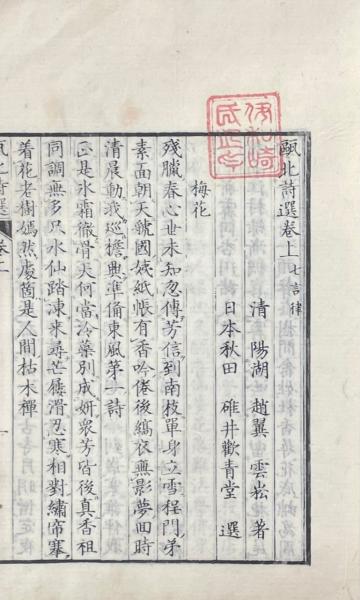 甌北詩選卷上 七言律
清 陽湖 趙翼 雲崧 著
日本秋田 碓井歡 青堂 選
梅花
殘臘春心世未知忽傳芳信到南枝單身立雪程門弟
素面朝天虢國姨紙帳有香吟倦後縞衣無影夢回時
清晨動我巡檐興準備東風第一詩
正是氷霜徹骨天何當冷蘂別成妍衆芳皆後真香祖
同調無多只水仙踏凍來尋芒屩滑忍寒相對繡帘褰
着花老樹嫣然處箇是人間枯木禪
甌北詩選 卷上
一